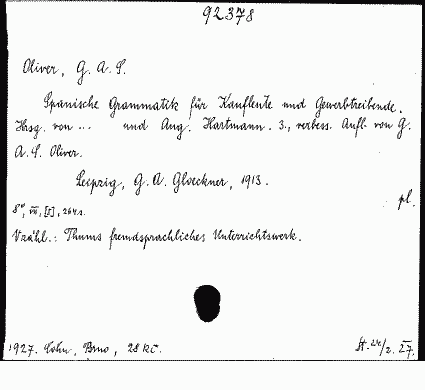 92378
Oliver, G. A. S.
Spanische Grammatik für Kaufleute und Gewerbtreibende.
Hrsg. von ... und Aug. Hartmann. 3., verbess. Aufl. von G.
A. S. Oliver.
Leipzig, G. A. Gloeckner, 1913.
pl.
8°, VII, [I], 264 s.
Vzáhl.: Thums fremdsprachliches Unterrichtswerk.
1927. Cohn, Brno, 28 Kč.
24/2. 27.